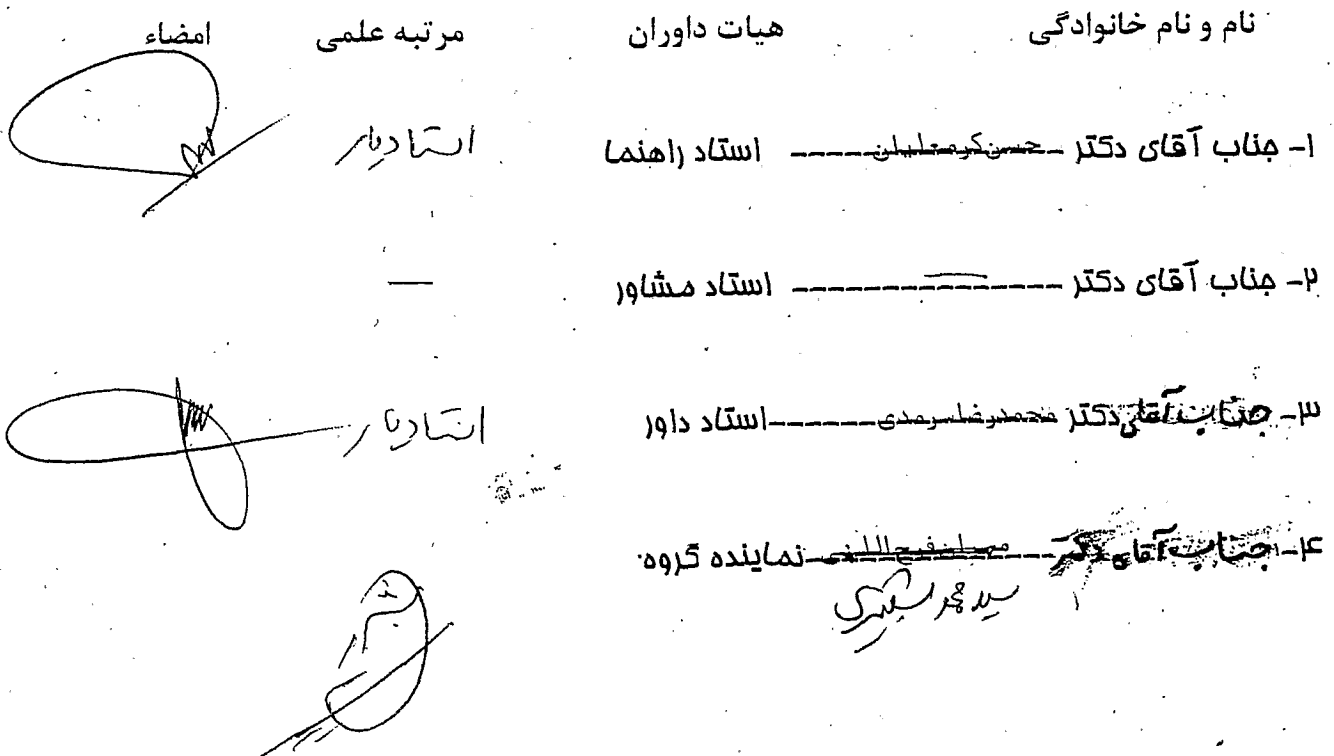 نام و نام خانوادگی هیات داوران مرتبه علمی امضاء
۱- جناب آقای دکتر حسن کرمعلیان استاد راهنما استادیار
۲- جناب آقای دکتر ---------------- استاد مشاور —
۳- جناب آقای دکتر محمدرضا سرمدی ------ استاد داور استادیار
۴- جناب آقای دکتر --- نماینده گروه
سید محمد